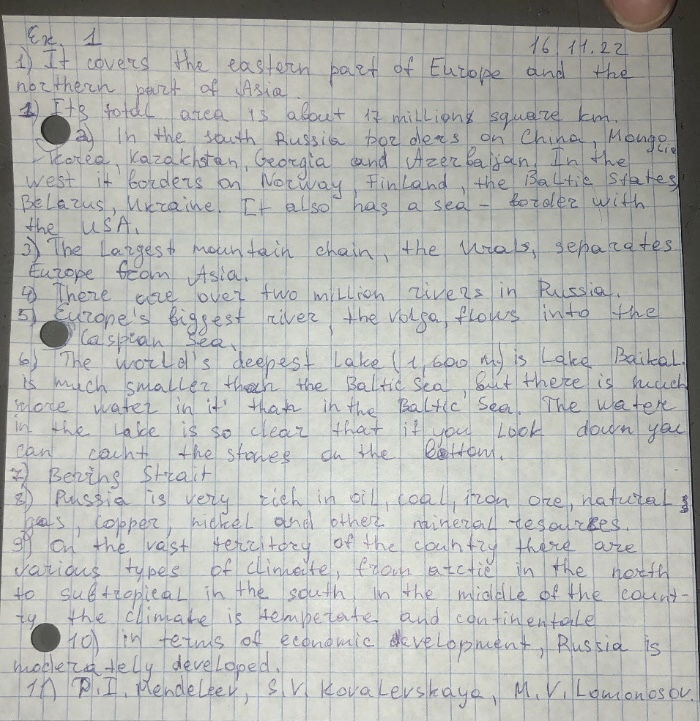 Ex. 1
16.11.22
1) It covers the eastern part of Europe and the
northern part of Asia.
1) Its total area is about 17 millions square km.
2) In the south Russia borders on China, Mongolia
Korea, Kazakhstan, Georgia and Azerbaijan. In the
west it borders on Norway, Finland, the Baltic States,
Belarus, Ukraine. It also has a sea-border with
the USA.
3) The Largest mountain chain, the Urals, separates
Europe from Asia.
4) There are over two million rivers in Russia.
5) Europe's biggest river, the Volga, flows into the
Caspian Sea.
6) The world's deepest Lake (1,600 m) is Lake Baikal.
is much smaller than the Baltic Sea, but there is much
more water in it than in the Baltic Sea. The water
in the Lake is so clear that if you Look down you
can count the stones on the bottom.
7) Bering Strait
8) Russia is very rich in oil, coal, iron ore, natural
gas, copper, nickel and other mineral resources.
9) On the vast territory of the country there are
various types of climate, from arctic in the north
to subtropical in the south. in the middle of the count-
ry the climate is temperate and continentale
10) in terms of economic development, Russia is
moderately developed.
11) D.I. Mendeleev, S.V. Kovalevskaya, M.V. Lomonosov.